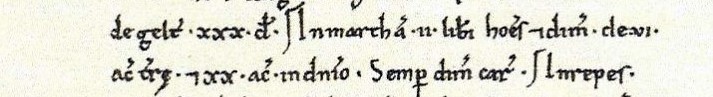 de gelt̃ · xxx · đ · In marchā · ii · lib̃i hoēs ⁊ dim̃ · de · vi ·
ac̃ t̃rę · ⁊ xx · ac̃ · in dñio · Semp̲ dim̃ car̃ · In repes ·